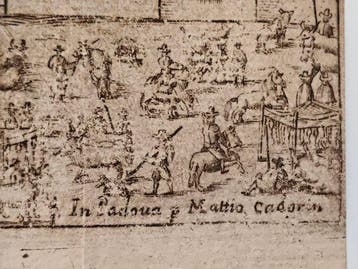 In Padoua p Mattio Cadorin